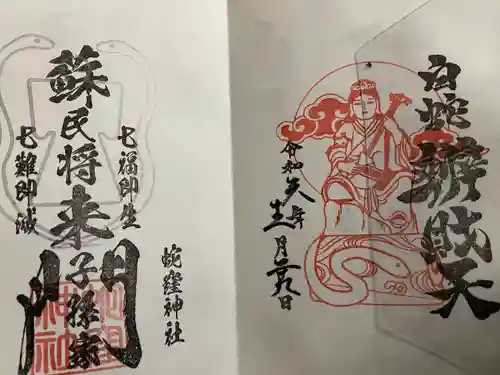 白蛇辨財天
令和
月
日
七福即生
蘇民将来子孫家門
七難即滅
蛇窪神社